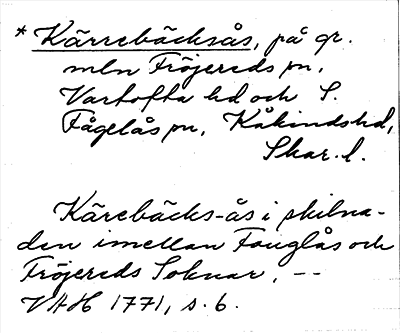 * Kärrebäcksås, på gr.
mln Fröjereds sn,
Vartofta hd och S.
Fågelås sn, Kåkindshd,
Skar. l.
Kärebäcks-ås i skilna-
den imellan Fouglås och
Fröjereds Soknar, --
VAH 1771, s. 6.